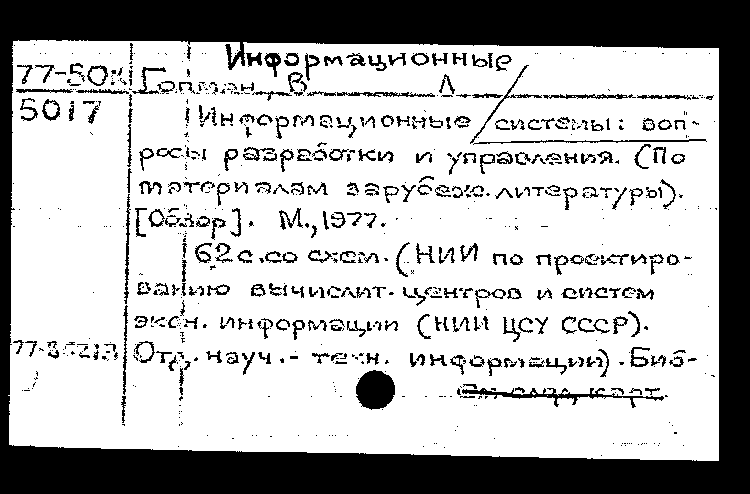 Информационные
77-50к Гопман, В Л
5017
Информационные системы: воп-
росы разработки и управления. (По
материалам зарубеж. литературы).
[Обзор]. М., 1977.
62 с. со схем. (НИИ по проектиро-
ванию вычислит. центров и систем
экон. информации (НИИ ЦСУ СССР).
Отд. науч.- техн. информации). Биб-
см. след. карт.